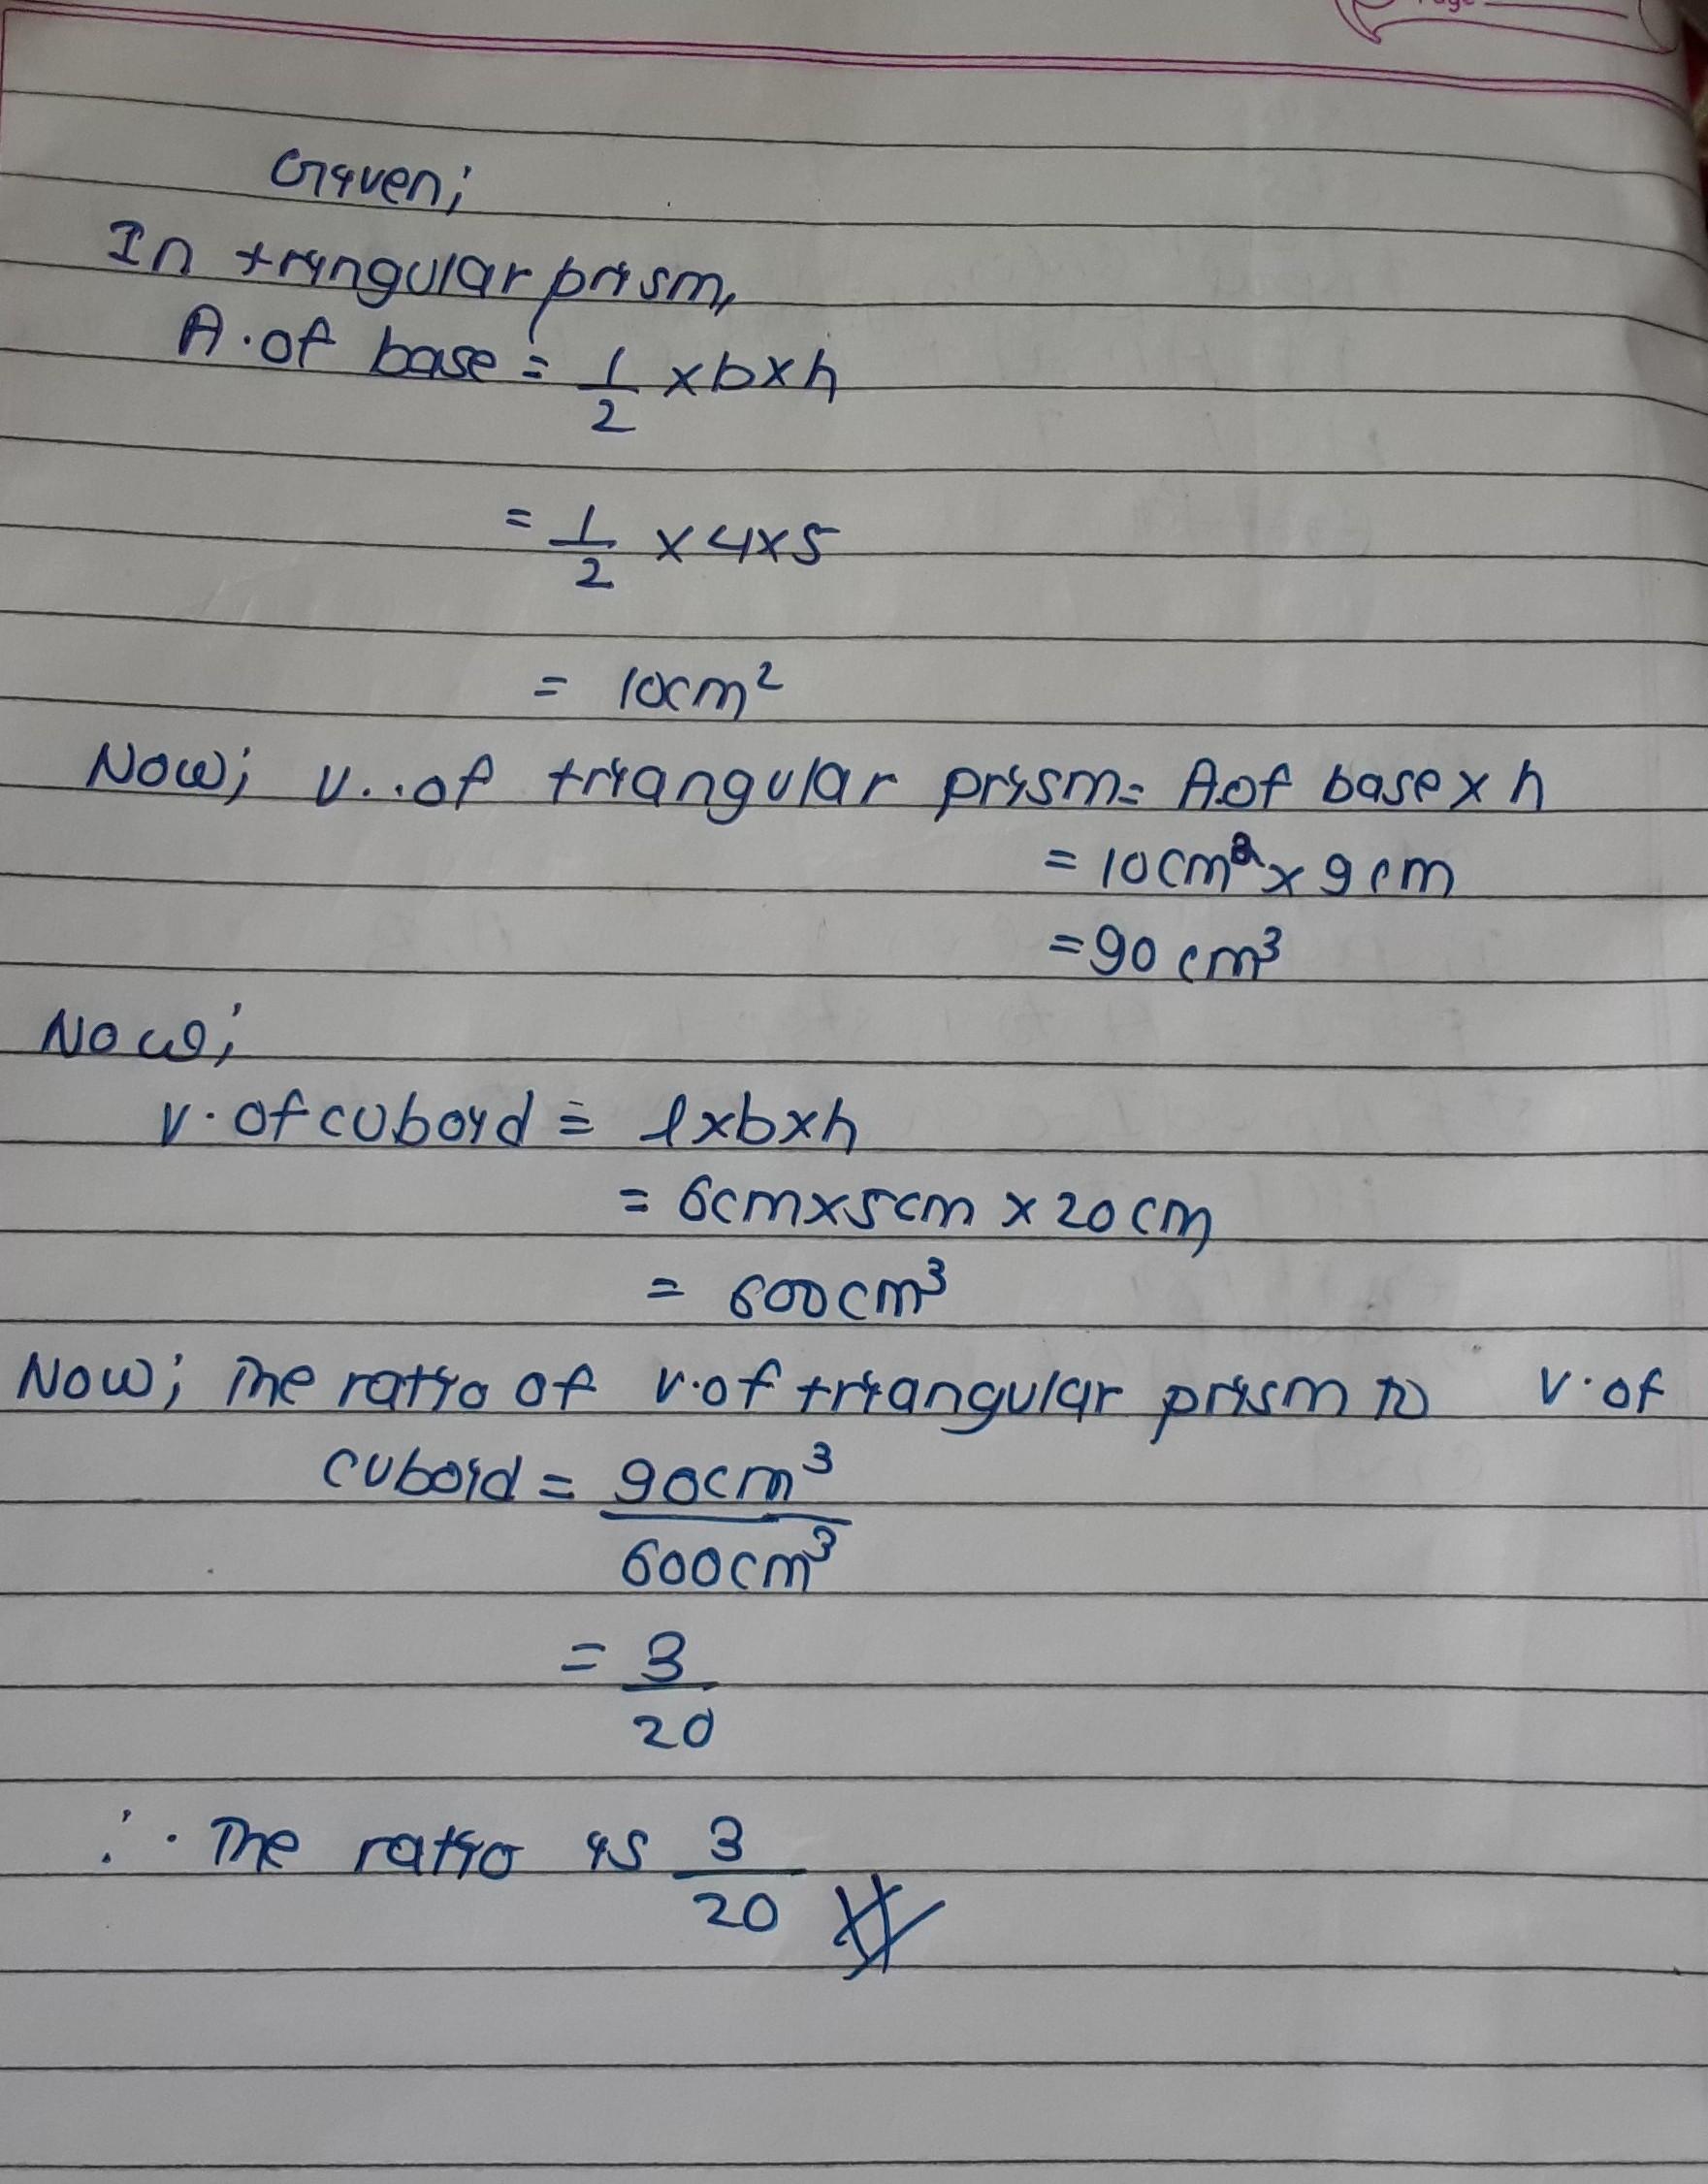 Page
Given;
In tringular prism,
A. of base = 1/2 × b × h
= 1/2 × 4 × 5
= 10cm²
Now; V.. of triangular prism = A.of base × h
= 10cm² × 9cm
= 90 cm³
Now;
V. of cuboid = l × b × h
= 6cm × 5cm × 20cm
= 600cm³
Now; The ratio of v.of triangular prism to v.of
cuboid = 90cm³/600cm³
= 3/20
∴ The ratio is 3/20